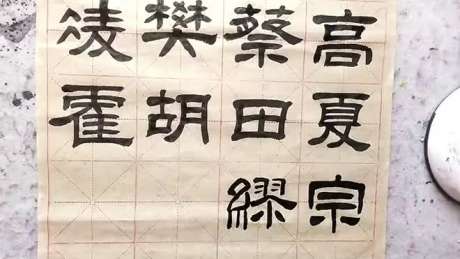 高夏宗
蔡田繆
樊胡
凌霍